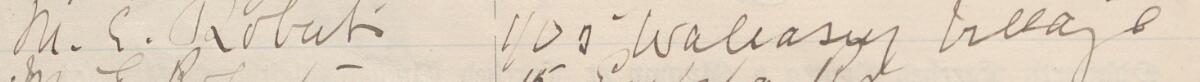 M. E. Roberts 105 Wallasey Village
M. E. Rob